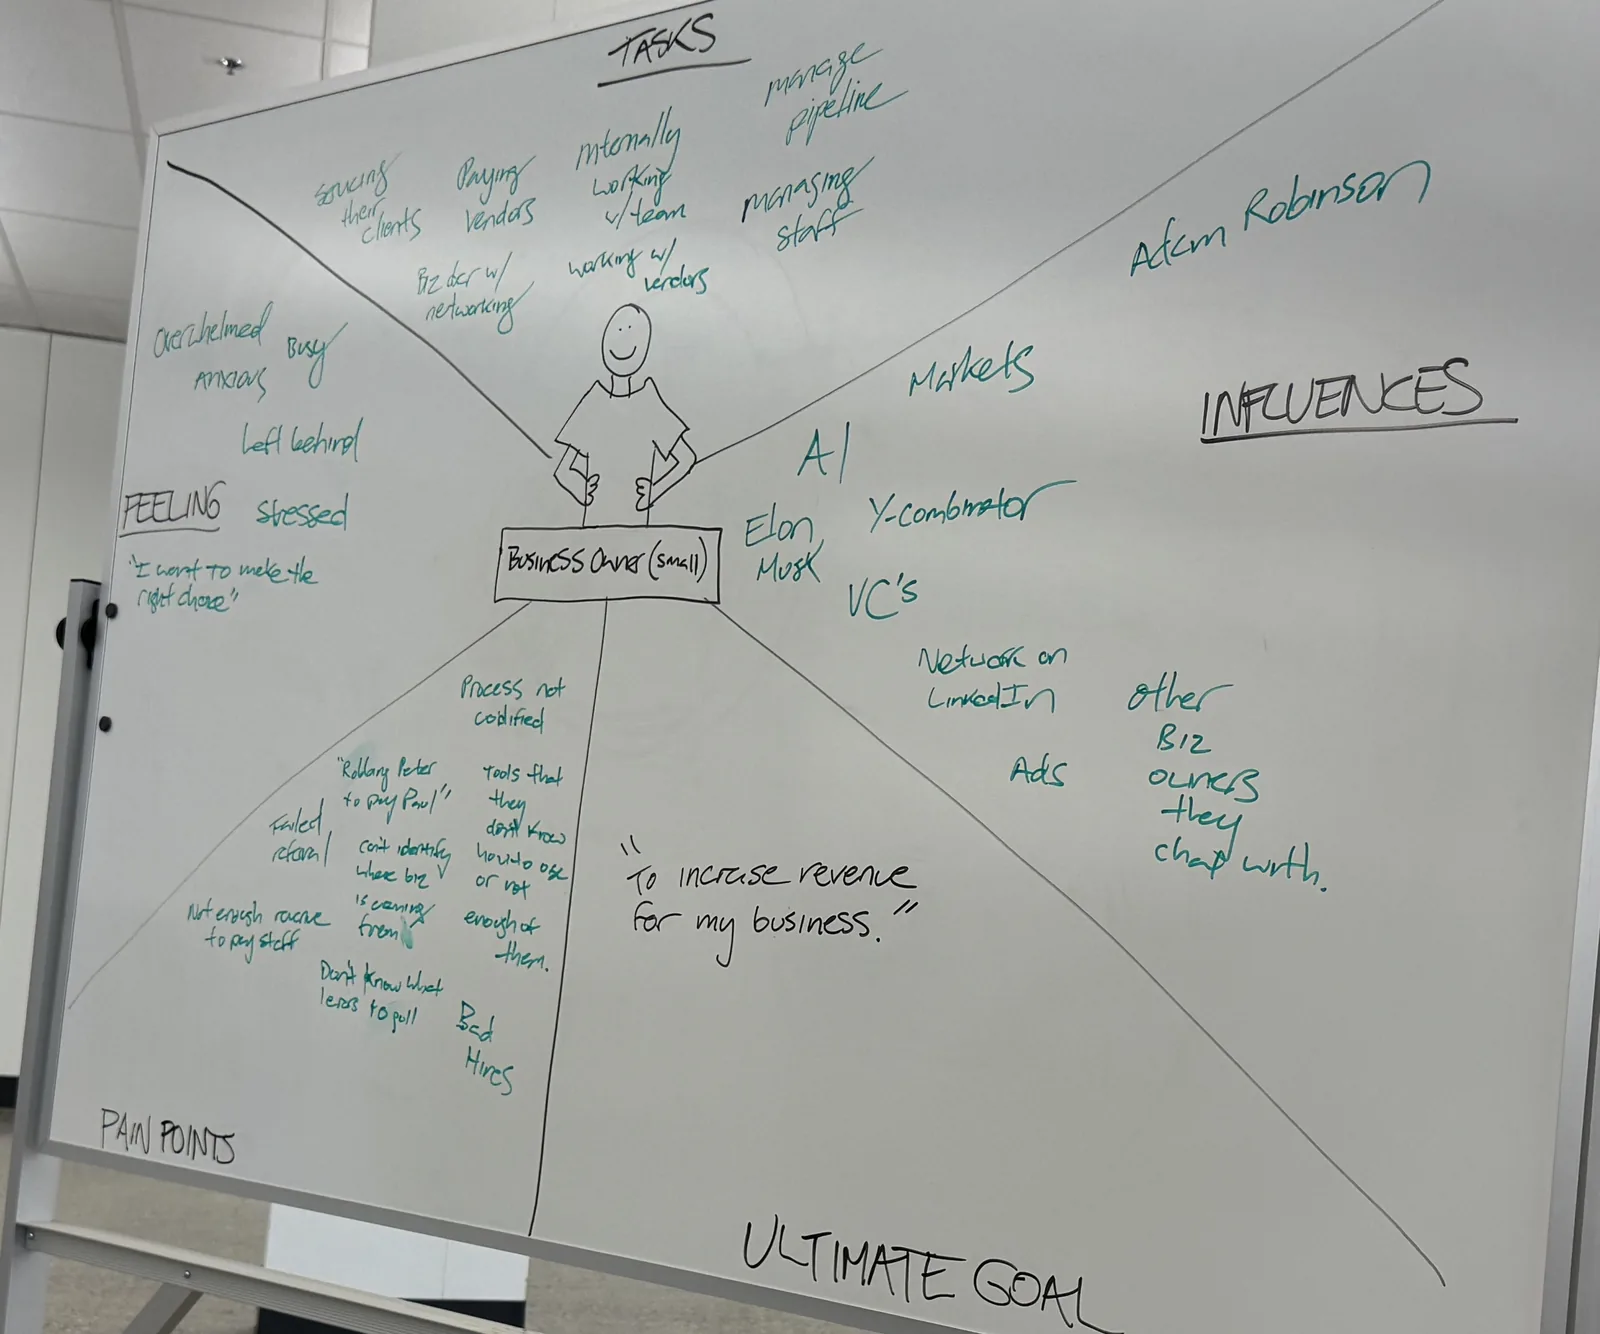 TASKS
sourcing
their
clients
Paying
vendors
Internally
working
w/team
manage
pipeline
managing
staff
Biz dev w/
networking
working w/
vendors
Overwhelmed
Busy
Anxious
Left behind
FEELING
stressed
"I want to make the
right choice"
Business Owner (small)
Adam Robinson
INFLUENCES
Markets
AI
Y-combinator
Elon
Musk
VC's
Network on
LinkedIn
Other
Biz
owners
they
chat with.
Ads
Process not
codified
"Robbing Peter
to pay Paul"
Tools that
they
don't know
how to use
or not
enough of
them.
Failed
referral
can't identify
where biz
is coming
from
Not enough revenue
to pay staff
Don't know what
levers to pull
Bad
Hires
PAIN POINTS
"To increase revenue
for my business."
ULTIMATE GOAL